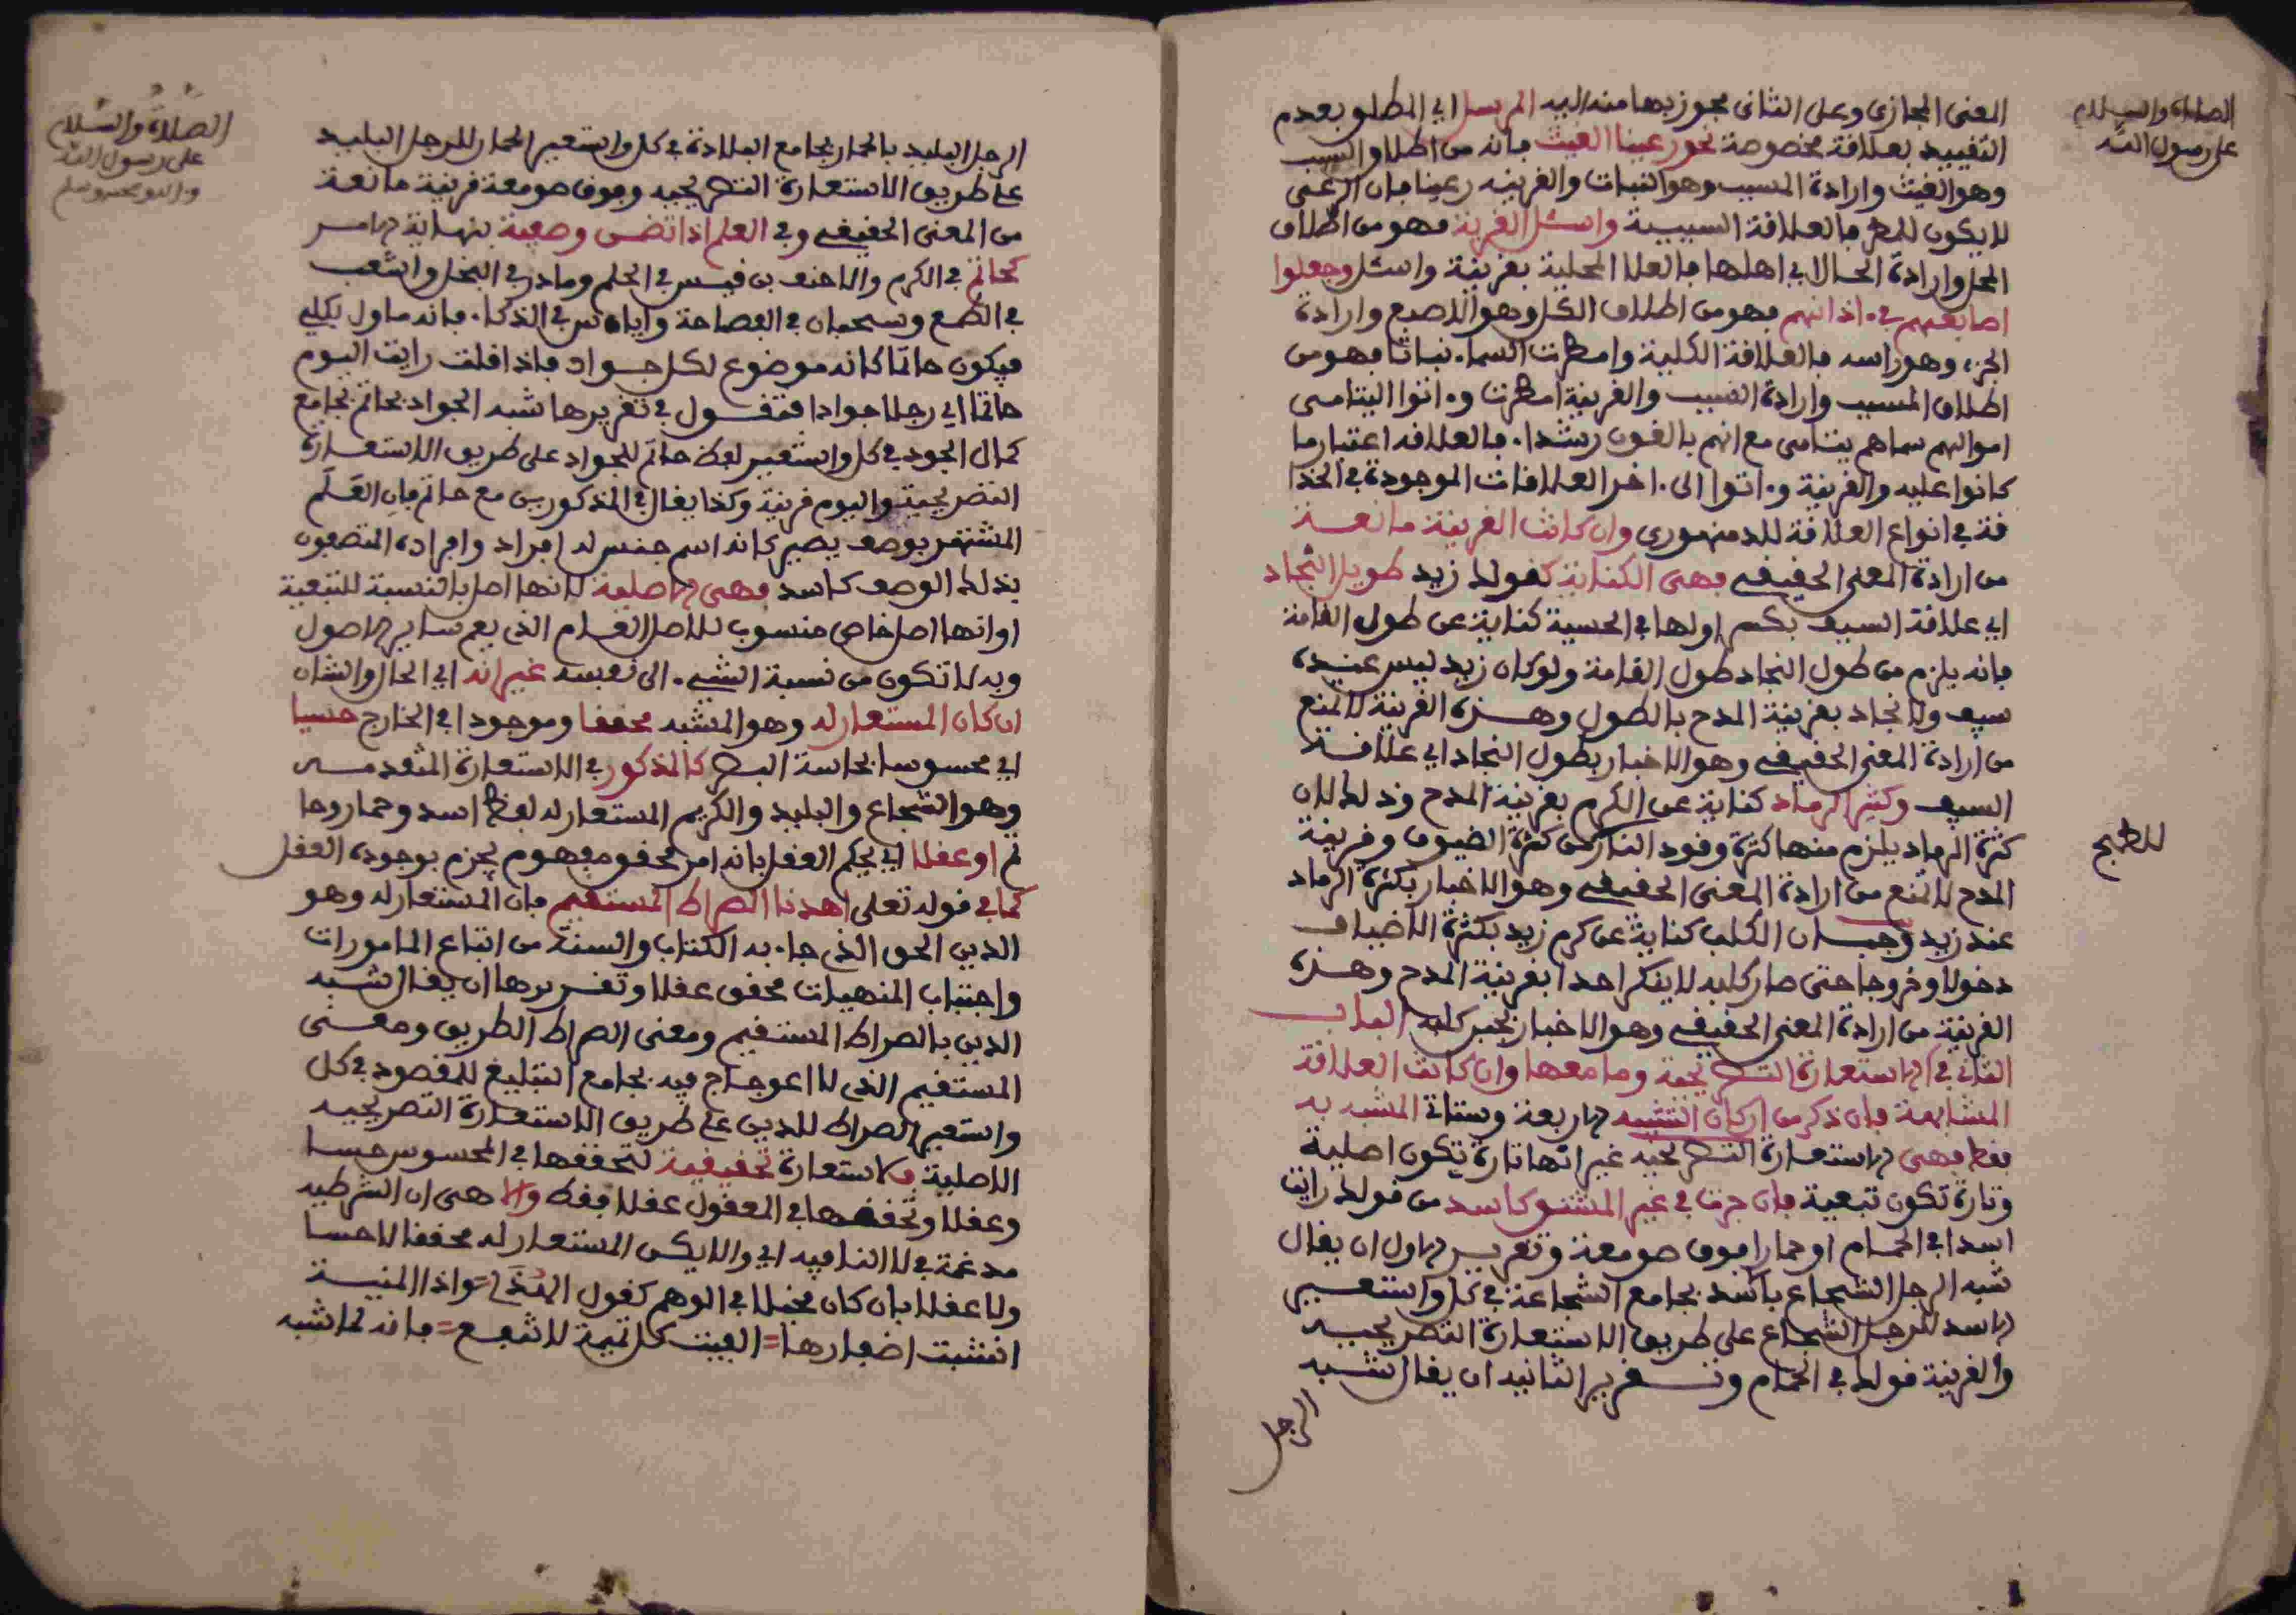 الصلاة والسلام
على رسول الله
المعنى المجازى وعلى الثانى مجوز بها منه اليه المرسل اي المطلو بعدم
التقييد بعلاقة مخصوصة نحو رعينا الغيث فانه من اطلاو السبب
وهو الغيث وارادة المسبب وهو النبات والقرينه رعينا فان الرعى
لا يكون للمطر فالعلاقة السببية واسئل القرية فهو من اطلاق
المحل وارادة الحال اي اهلها فالعلا المحلية بقرينة واسئل وجعلوا
اصابعهم في ءاذانهم فهو من اطلاق الكل وهو الاصبع وارادة
الجزء وهو راسه فالعلاقة الكلية وامطرت السماء نباتا فهو من
اطلاق المسبب وارادة السبب والقرينة امطرت وءاتوا اليتامى
اموالهم سماهم يتامى مع انهم بالغون رشداء فالعلاقه اعتبار ما
كانوا عليه والقرينة وءاتوا الى ءاخر العلاقات الموجودة في الخذا
فة في انواع العلاقة للدمنهورى وان كانت القرينة مانعة
من ارادة المعنى الحقيقي فهى الكناية كقولك زيد طويل النجاد
اي علاقة السيف بكسر اولها في الحسية كناية عن طول القامة
فانه يلزم من طول النجاد طول القامة ولو كان زيد ليس عنده
سيف ولا نجاد بقرينة المدح بالطول وهذه القرينة لا تمنع
من ارادة المعنى الحقيقي وهو الاخبار بطول النجاد اي علاقة
السيف وكثير الرماد كناية عن الكرم بقرينة المدح وذلك لان
كثرة الرماد يلزم منها كثرة وقود النار من كثرة الضيوف وقرينة
للطبخ
المدح لا تمنع من ارادة المعنى الحقيقي وهو الاخبار بكثرة الرماد
عند زيد وجبان الكلب كناية عن كرم زيد بكثرة الاضياف
دخولا وخروجا حتى صار كلبه لا ينكر احدا بقرينة المدح وهذه
القرينة من ارادة المعنى الحقيقي وهو الاخبار بجبر كلبه الباب
الثانى في الاستعارة التصريحية وما معها وان كانت العلاقة
المشابهة فان ذكر من اركان التشبيه الاربعة وستاتى المشبه به
فقط فهى الاستعارة التصريحيه غير انها تارة تكون اصلية
وتارة تكون تبعية فان جرت في غير المشتق كاسد من قولك رايت
اسدا في الحمام او حمارا فوق صومعة وتقرير الاول ان يقال
شبه الرجل الشجاع بالاسد بجامع الشجاعة في كل واستعير
الاسد للرجل الشجاع على طريق الاستعارة التصريحيه
والقرينة قولك في الحمام وتقرير الثانيه ان يقال شبه
الرجل
الصلاة والسلام
على رسول الله
الرجل البليد بالحمار بجامع البلادة في كل واستعير الحمار للرجل البليد
على طريق الاستعارة التصريحيه وفوق صومعة قرينة مانعة
من المعنى الحقيقي وفي العلم اذا تضمن وصفية بنهاية الامر
كحاتم في الكرم والاحنف بن قيس في الحلم ومادر في البخل واشعب
في الطمع وسحبان في الفصاحة واياس في الذكاء فانه ماول بكلي
فيكون حاتما كانه موضوع لكل جواد فاذا قلت رايت اليوم
حاتما اي رجلا جوادا فتقول في تقريرها شبه الجواد بحاتم بجامع
كمال الجود في كل واستعير لفظ حاتم للجواد على طريق الاستعارة
التصريحية واليوم قرينة وكذا يقال في المذكورين مع حاتم فان العلم
المشتهر بوصف يصير كانه اسم جنس له افراد وافراده المتصفون
بذلك الوصف كاسد فهى الاصلية لانها اصل بالنسبة للتبعية
او انها اصل خاص منسوب للاصل العام الذي يعم ساير الاصول
وبه لا تكون من نسبة الشيء الى نفسه غير انه اي الحال والشان
ان كان المستعار له وهو المشبه محققا وموجودا في الخارج حسيا
اي محسوسا بحاسة البصر كالمذكور في الاستعارة المتقدمة
وهو الشجاع والبليد والكريم المستعار له لفظ اسد وحمار وحا
تم او عقلا اي يحكم العقل بانه امر محقق مفهوم يجزم بوجوده العقل
كما في قوله تعلى اهدنا الصراط المستقيم فان المستعار له وهو
الدين الحق الذي جاء به الكتاب والسنة من اتباع المامورات
واجتناب المنهيات محقق عقلا وتقريرها ان يقال شبه
الدين بالصراط المستقيم ومعنى الصراط الطريق ومعنى
المستقيم الذي لا اعوجاج فيه بجامع التبليغ للمقصود في كل
واستعير الصراط للدين على طريق الاستعارة التصريحيه
الاصلية فالاستعارة تحقيقية لتحققها في المحسوس حسا
وعقلا وتحققها في المعقول عقلا فقط والا هى ان الشرطيه
مدغمة في لا النافيه اي والا يكن المستعار له محققا لا حسا
ولا عقلا بان كان مخيلا في الوهم كقول الهذلي = واذا المنية
انشبت اضفارها = الفيت كل تميمة لا تنفع = فانه لما شبه